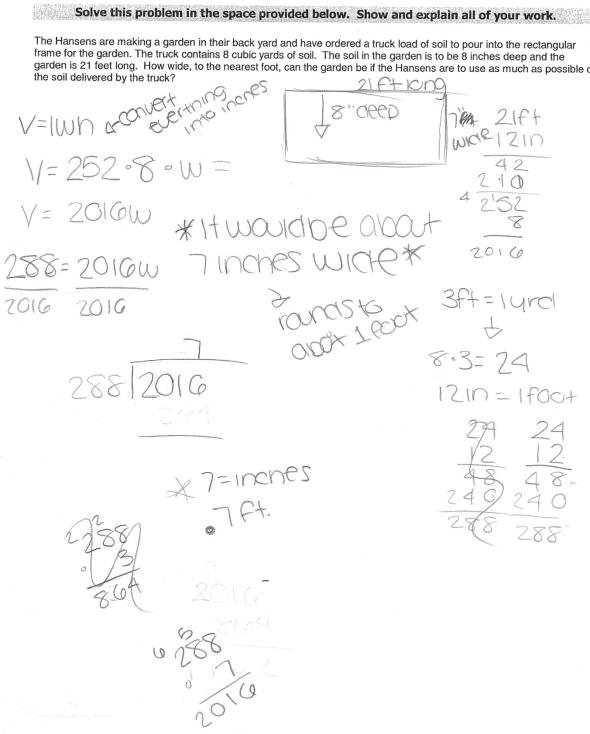 Solve this problem in the space provided below. Show and explain all of your work.
The Hansens are making a garden in their back yard and have ordered a truck load of soil to pour into the rectangular
frame for the garden. The truck contains 8 cubic yards of soil. The soil in the garden is to be 8 inches deep and the
garden is 21 feet long. How wide, to the nearest foot, can the garden be if the Hansens are to use as much as possible o
the soil delivered by the truck?
21ft long
V=lwh
convert
everything
into inches
8" deep
wide
21ft
12in
42
210
4 252
8
2016
V= 252·8·w =
V= 2016w
288 = 2016w
2016 2016
*It would be about
7 inches wide*
rounds to
about 1 foot
3ft = 1yrd
8·3= 24
12in = 1foot
7
288 2016
24 24
12 12
48 48
240 240
288 288
* 7=inches
.7ft.
2 2
288
3
864
2016
864
6 5
288
7
2016